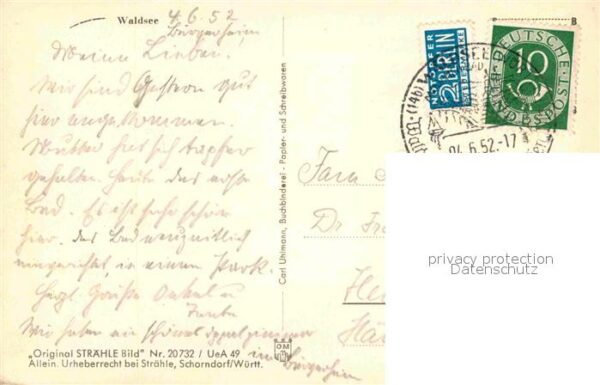 Waldsee 4.6.52
Bürgerheim
Meine Lieben.
Wir sind Gestern gut
hier angekommen.
Mutter hat sich tapfer
gehalten heute das erste
Bad. Es ist sehr schön
hier. das Bad neuzeitlich
eingerichtet in einem Park.
Herzl. Grüße Onkel u
Tante
Wir haben ein schönes Doppelzimmer
im Bürgerheim
„Original STRÄHLE Bild" Nr. 20732 / UeA 49
Allein. Urheberrecht bei Strähle, Schorndorf/Württ.
Carl Uhlmann, Buchbinderei - Papier- und Schreibwaren
NOTOPFER
2 BERLIN
STEUERMARKE
DEUTSCHE
BUNDESPOST
10
B
(14b)
04.6.52.-17
Fam
Dr Fr
privacy protection
Datenschutz